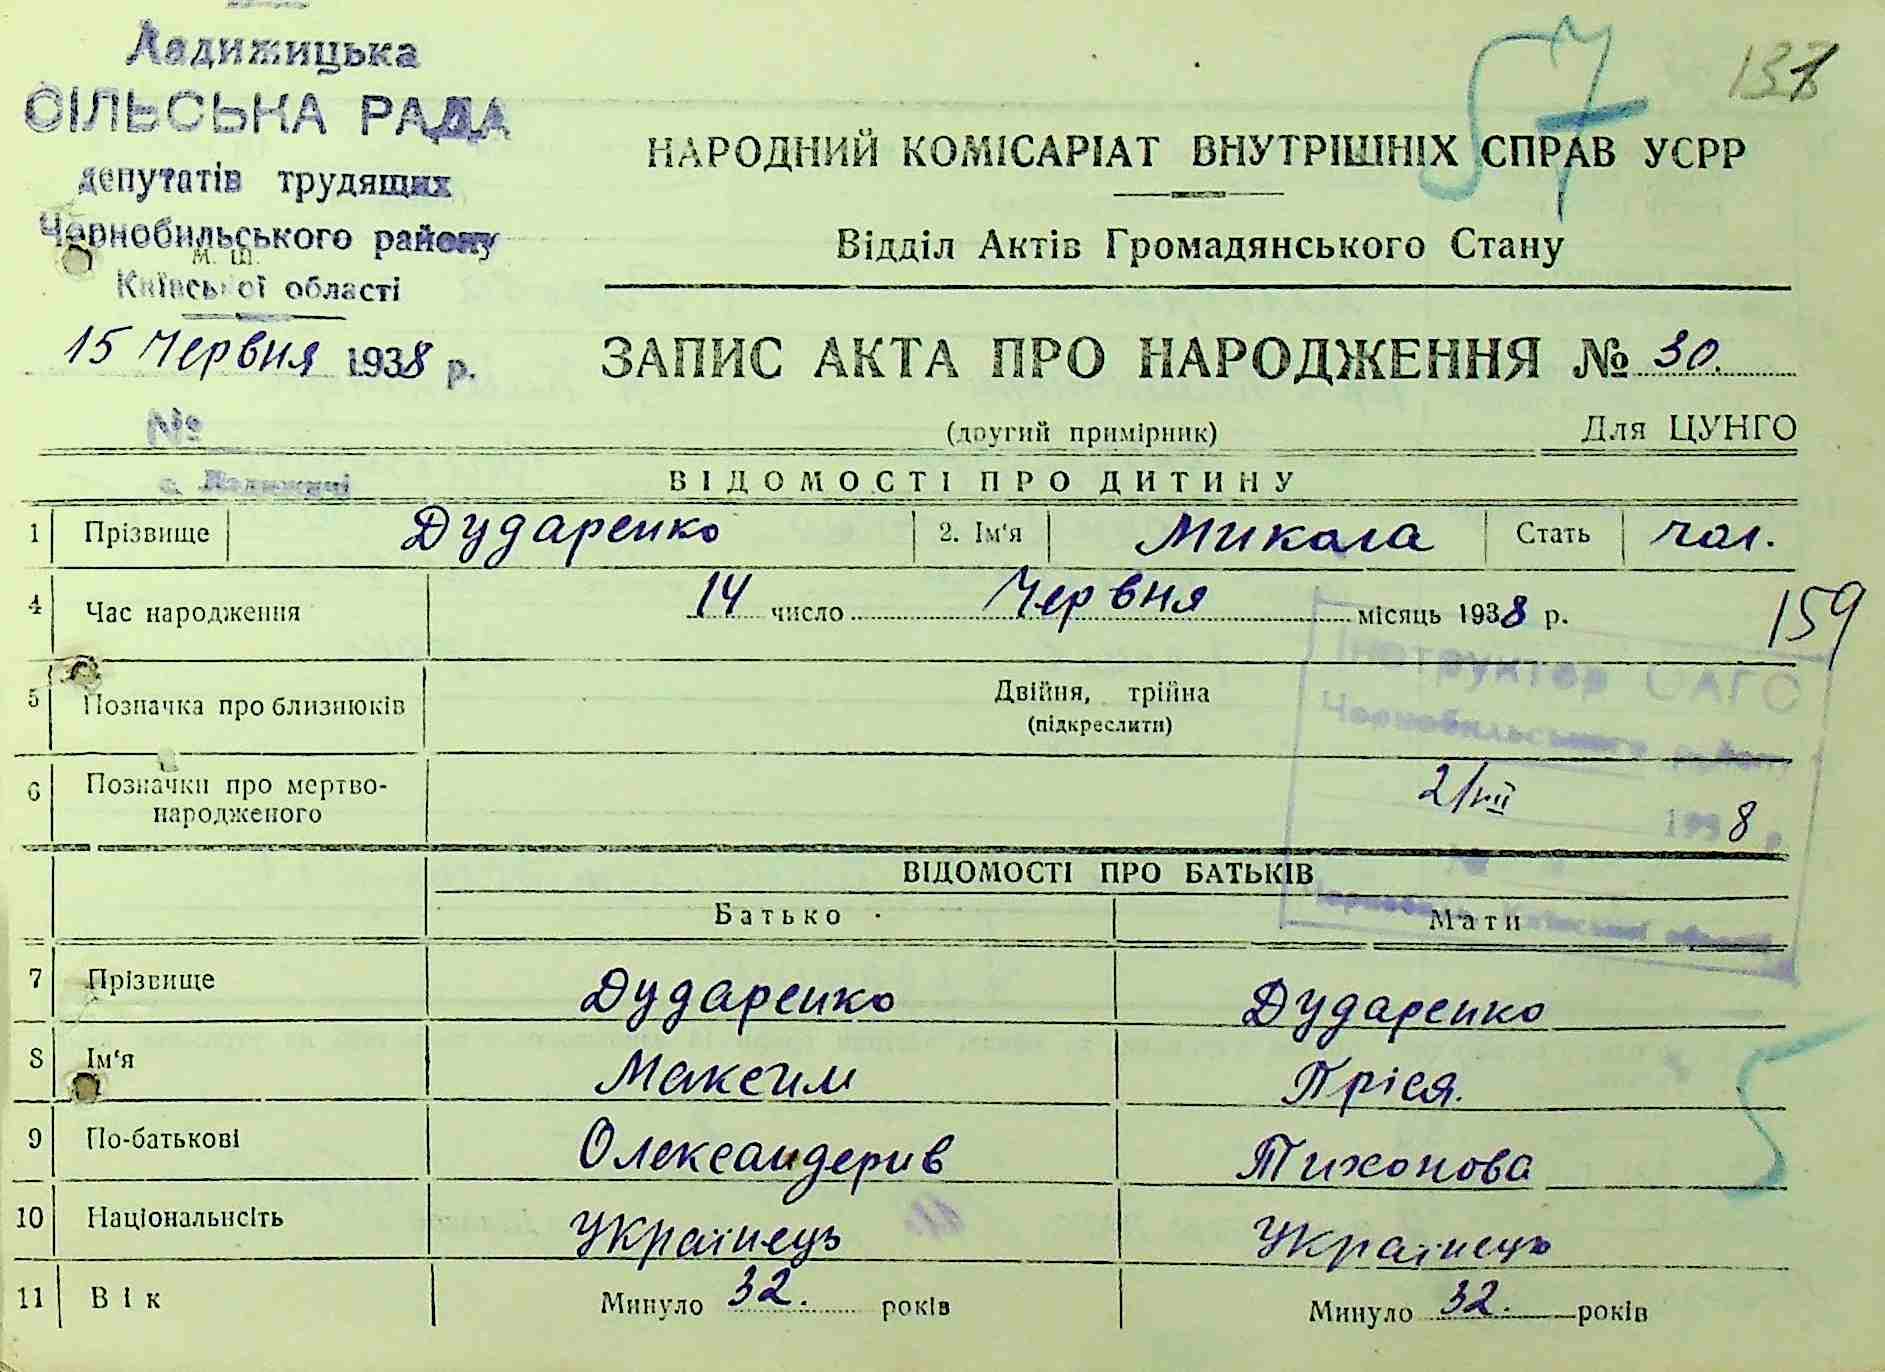 Ладижицька
СІЛЬСЬКА РАДА
депутатів трудящих
Чорнобильського району
м. ш.
Київської області
15 Червня 1938 р.
№
с. Ладижичі
57
131
НАРОДНИЙ КОМІСАРІАТ ВНУТРІШНІХ СПРАВ УСРР
Відділ Актів Громадянського Стану
ЗАПИС АКТА ПРО НАРОДЖЕННЯ № 30.
(другий примірник) Для ЦУНГО
ВІДОМОСТІ ПРО ДИТИНУ
1 Прізвище Дударенко 2. Ім'я Микола Стать чол.
4 Час народження 14 число Червня місяць 1938 р.
159
5 Позначка про близнюків Двійня, трійна
(підкреслити)
Інструктор ОАГС
Чорнобильського району
6 Позначки про мертво-
народженого
2/VII 1938 р.
№
Чорнобиль Київської області
ВІДОМОСТІ ПРО БАТЬКІВ
Батько Мати
7 Прізвище Дударенко Дударенко
8 Ім'я Максим Пріся.
9 По-батькові Олександерив Тихонова
10 Національність Українець Українець
11 Вік Минуло 32. років Минуло 32. років